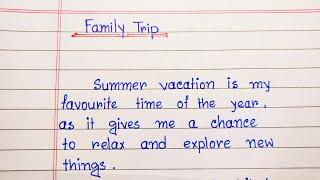 Family Trip
Summer vacation is my
favourite time of the year,
as it gives me a chance
to relax and explore new
things.